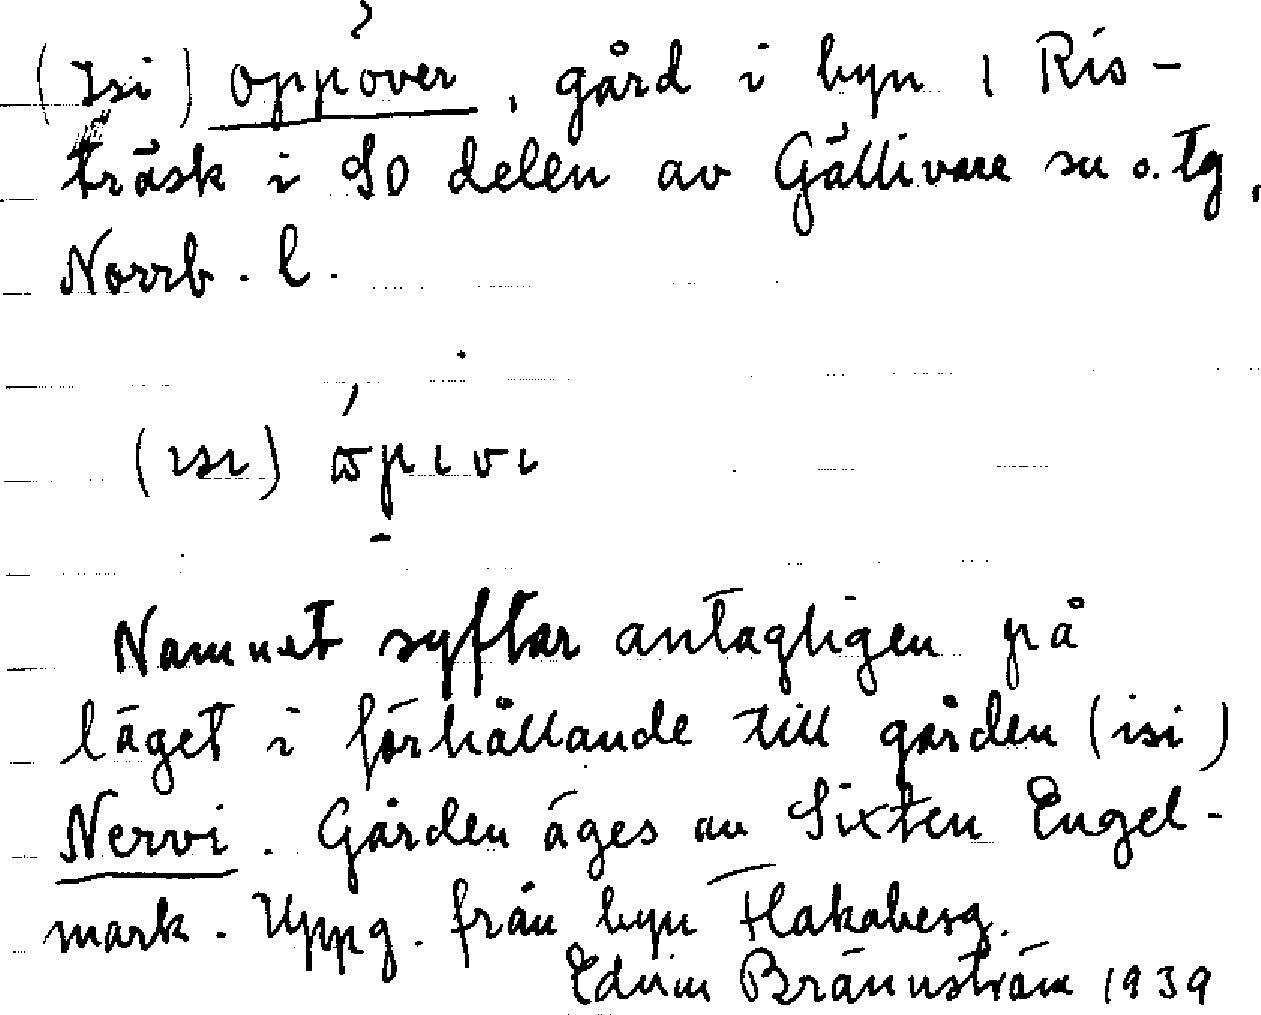 (Isi) oppöver, gård i byn 1 Ris-
träsk i SO delen av Gällivare sn o. tg,
Norrb. l.
(ısı)
Namnet syftar antagligen på
läget i förhållande till gården (isi)
Nervi. Gården äges av Sixten Engel-
mark. Uppg. från byn Flakaberg.
Edvin Brännström 1939